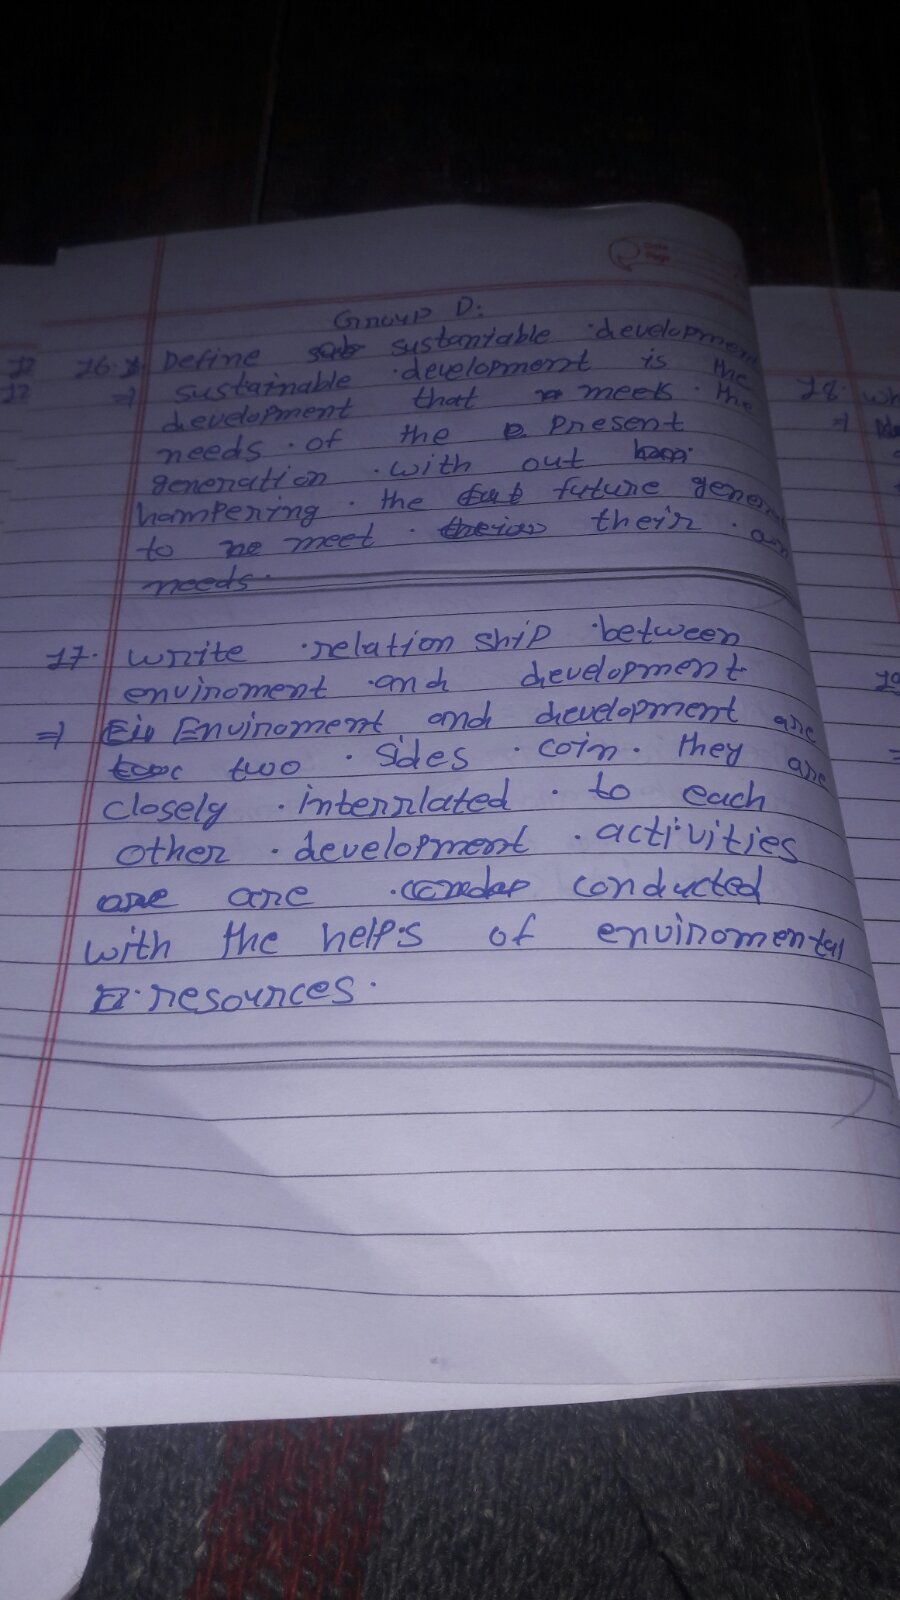 Group D:
16. Define sustantable development
⇒ sustainable development is the
development that meets the
needs of the present
generation with out
hampering the future gener
to meet their own
needs.
17. write relation ship between
enviroment and development
⇒ Enviroment and development are
two sides coin. they are
closely interrlated to each
other development activities
are are conducted
with the helps of enviromental
resources.
12
12
18. wh
⇒
19